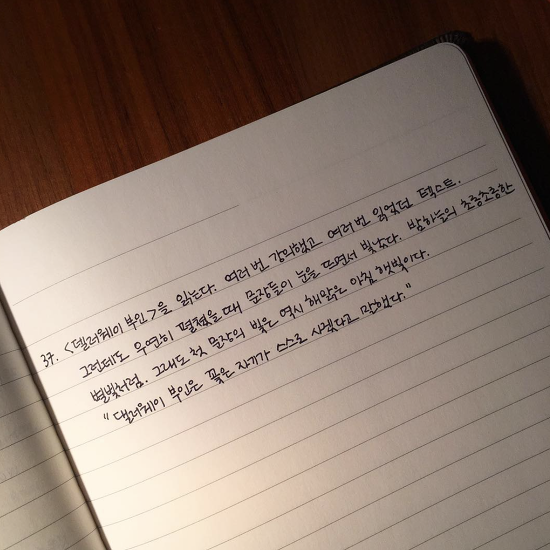 37. <댈러웨이 부인>을 읽는다. 여러번 강의했고 여러번 읽었던 텍스트.
그런데도 우연히 펼쳤을 때 문장들이 눈을 뜨면서 빛났다. 밤하늘의 초롱초롱한
별빛처럼. 그래도 첫 문장의 빛은 역시 해맑은 아침 햇빛이다.
"댈러웨이 부인은 꽃은 자기가 스스로 사겠다고 말했다."